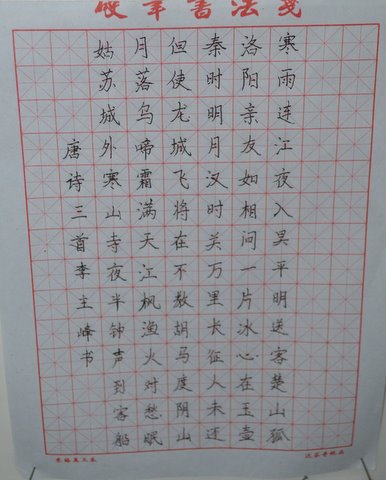 硬筆書法箋
寒雨连江夜入吴平明送客楚山孤
洛阳亲友如相问一片冰心在玉壶
秦时明月汉时关万里长征人未还
但使龙城飞将在不教胡马度阴山
月落乌啼霜满天江枫渔火对愁眠
姑苏城外寒山寺夜半钟声到客船
唐诗三首李主峰书